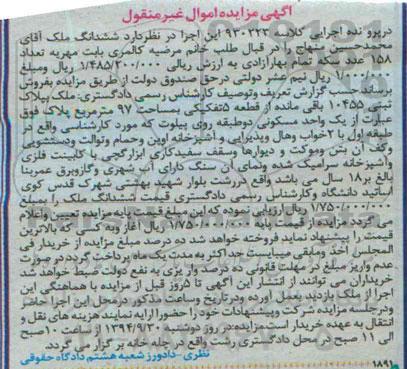 آگهی مزایده اموال غیرمنقول
درپرو نده اجرایی کلاسه ۹۳۰۲۲۳ این اجرا در نظردارد ششدانگ ملک آقای
محمدحسین منهاج را در قبال طلب خانم مرضیه کالمری بابت مهریه تعداد
۱۵۸ عدد سکه تمام بهارآزادی به ارزش ریالی ۱/۴۸۵/۲۰۰/۰۰۰ ریال ومبلغ
۱/۰۰۰/۰۰۰ ریال نیم عشر دولتی درحق صندوق دولت ازطریق مزایده بفروش
برساندحسب گزارش تعریف وتوصیف کارشناس رسمی دادگستری: ملک پلاک
ثبتی ۱۰۴۵۵ باقی مانده از قطعه ۵تفکیکی بمساحت ۹۷ مترمربع پلاک فوق
عبارت از یک واحد مسکونی دوطبقه روی پیلوت که مورد کارشناسی واقع در
طبقه اول با ۲خواب وهال وپذیرایی و آشپزخانه اوپن وحمام وتوالت ودستشویی
وکف آن بتن وموکت و دیوارها وسقف سفیدکاری ابزارگچی با کابینت فلزی
وآشپزخانه سرامیک شده ونمای آن سنگ دارای آب شهری وگازوبرق عمربنا
بالغ بر۱۸ سال می باشد واقع دررشت بلوار شهید بهشتی شهرک قدس کوی
اساتید دانشگاه وکارشناس رسمی دادگستری قیمت ششدانگ ملک را بمبلغ
۱/۷۵۰/۰۰۰/۰۰۰ ریال ارزیابی نموده که این مبلغ قیمت پایه مزایده تعیین واعلام
می گردد مزایده از قیمت پایه ۱/۷۵۰/۰۰۰/۰۰۰ ریال آغاز وبه کسی که بالاترین
قیمت را پیشنهاد نماید فروخته خواهد شد ده درصد مبلغ مزایده از خریدار فی
المجلس اخذ ومابقی میبایست حداکثر به مدت یک ماه پرداخت گردد در صورت
عدم واریز مبلغ در مهلت قانونی ده درصد واریزی به نفع دولت ضبط خواهد شد
خریداران می توانند از انتشار این آگهی تا ۵روز قبل از مزایده با هماهنگی این
اجرا از ملک بازدید بعمل آورده ودرتاریخ وساعت مذکور درمحل این اجرا حاضر
ودرجلسه مزایده شرکت وپیشنهادات خود را حضورا ارایه نمایند هزینه های نقل و
انتقال به عهده خریدار است.مزایده:در روز دوشنبه ۱۳۹۴/۹/۳۰ از ساعت ۱۰صبح
الی ۱۱ صبح در محل دادگستری رشت واقع در چله خانه برگزار می گردد.
نظری -دادورز شعبه هشتم دادگاه حقوقی
۱۸۹۱